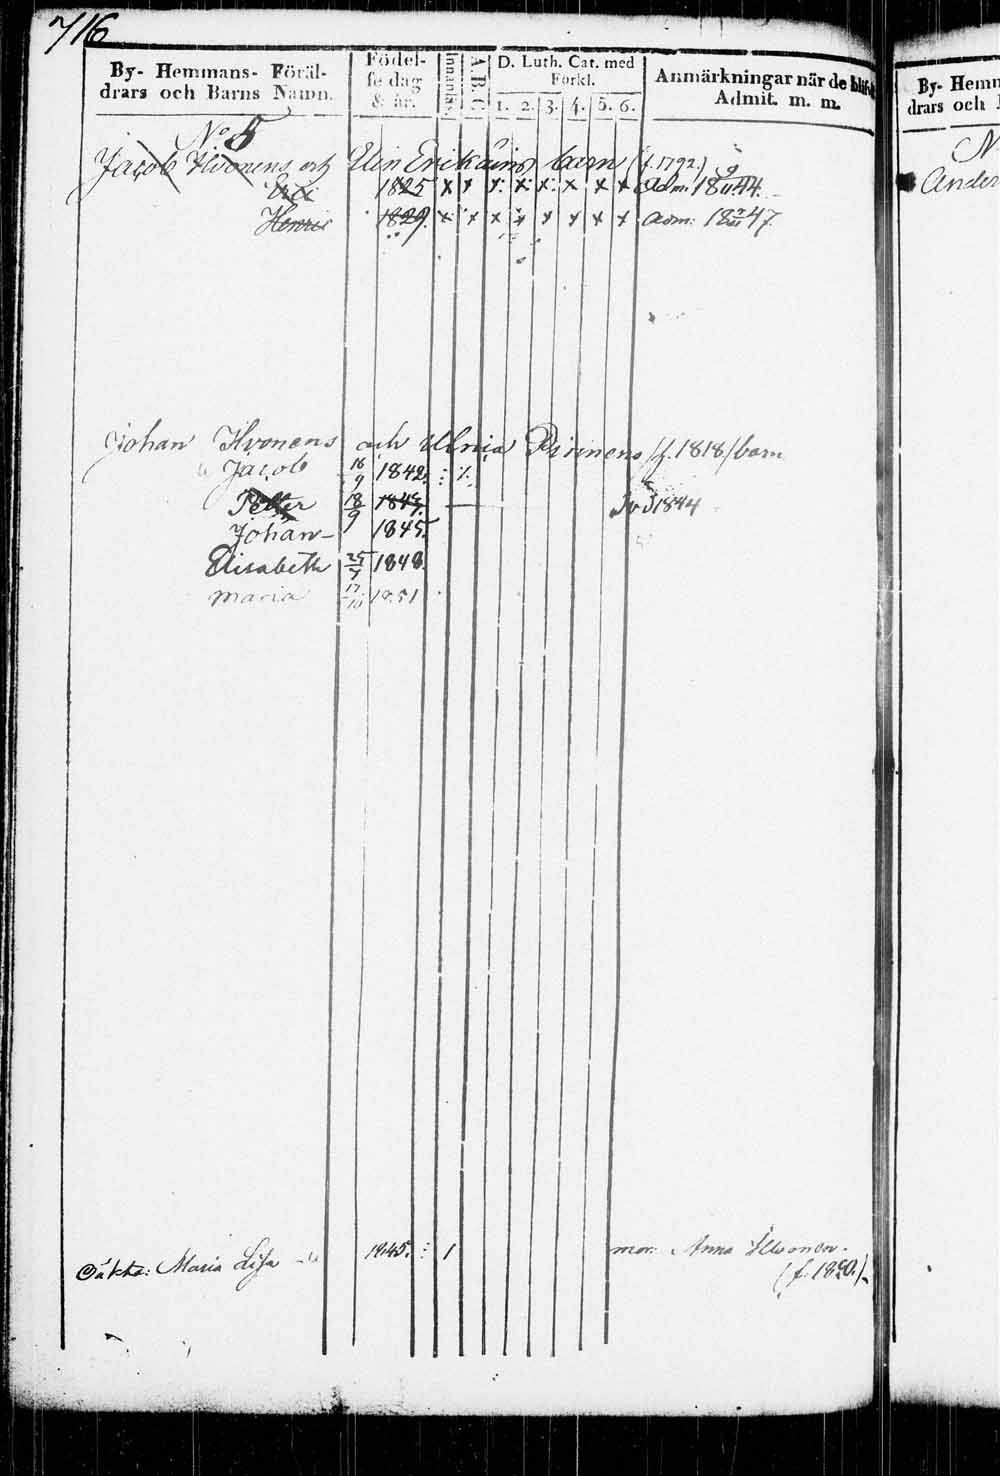 716
By- Hemmans- Föräl-
drars och Barns Namn.
Födel-
se dag
& år.
Innanläs.
A.B.C
D. Luth. Cat. med
Forkl.
1. 2. 3. 4. 5. 6.
Anmärkningar när de
Admit. m. m.
By- Hemm
drars och
No 5
N
Jacob Ilvonens och Elin Erikäins barn (f. 1792.)
1825 x x x x x x x x Adm. 18 9/11 44.
Ander
Henric 1829. x x x x x x x x adm. 18 47.
Johan Ilvonens och Ulrica Pirinens /f. 1818/ barn
Jacob 16/9 1842.
Petter 18/9 1844
Johan 1845.
Elisabeth 25/7 1848.
Maria 17/10 1851
Oäkta: Maria Lisa 1845. 1 mor: Anna Ilvonen.
(f. 1820.)